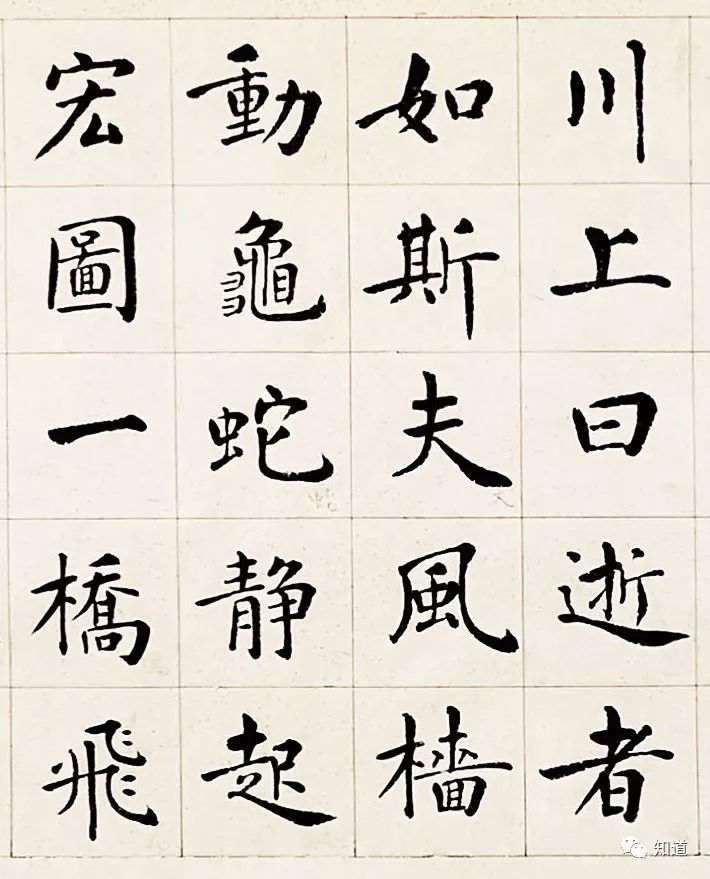 川上曰逝者
如斯夫風檣
動龜蛇静起
宏圖一橋飛
知道